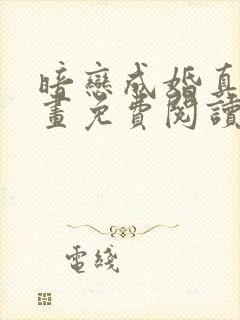 暗戀成婚真
畫免費閱讀
電綫